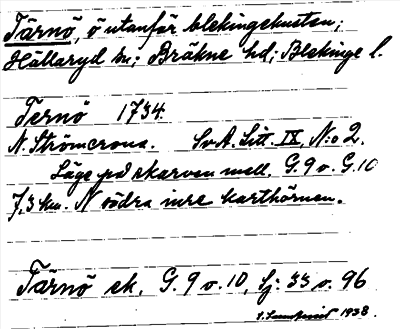 Tärnö, ö utanför blekingekusten;
Hällaryd sn; Bräkne hd; Blekinge l.
Ternö 1734.
N. Strömcrona. SvA. Litt. IX, N:o 2.
Läge på skarven mell. G.9 o. G.10
7,3 km. N södra inre karthörnen.
Tärnö ek, G.9 o. 10, Sj: 33 o. 96
1938.